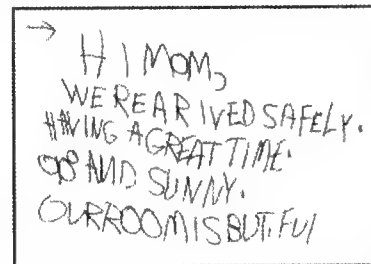 HI MOM,
WE REARIVED SAFELY.
HAVING A GREAT TIME.
AND SUNNY.
OUR ROOM IS BUT.FUl